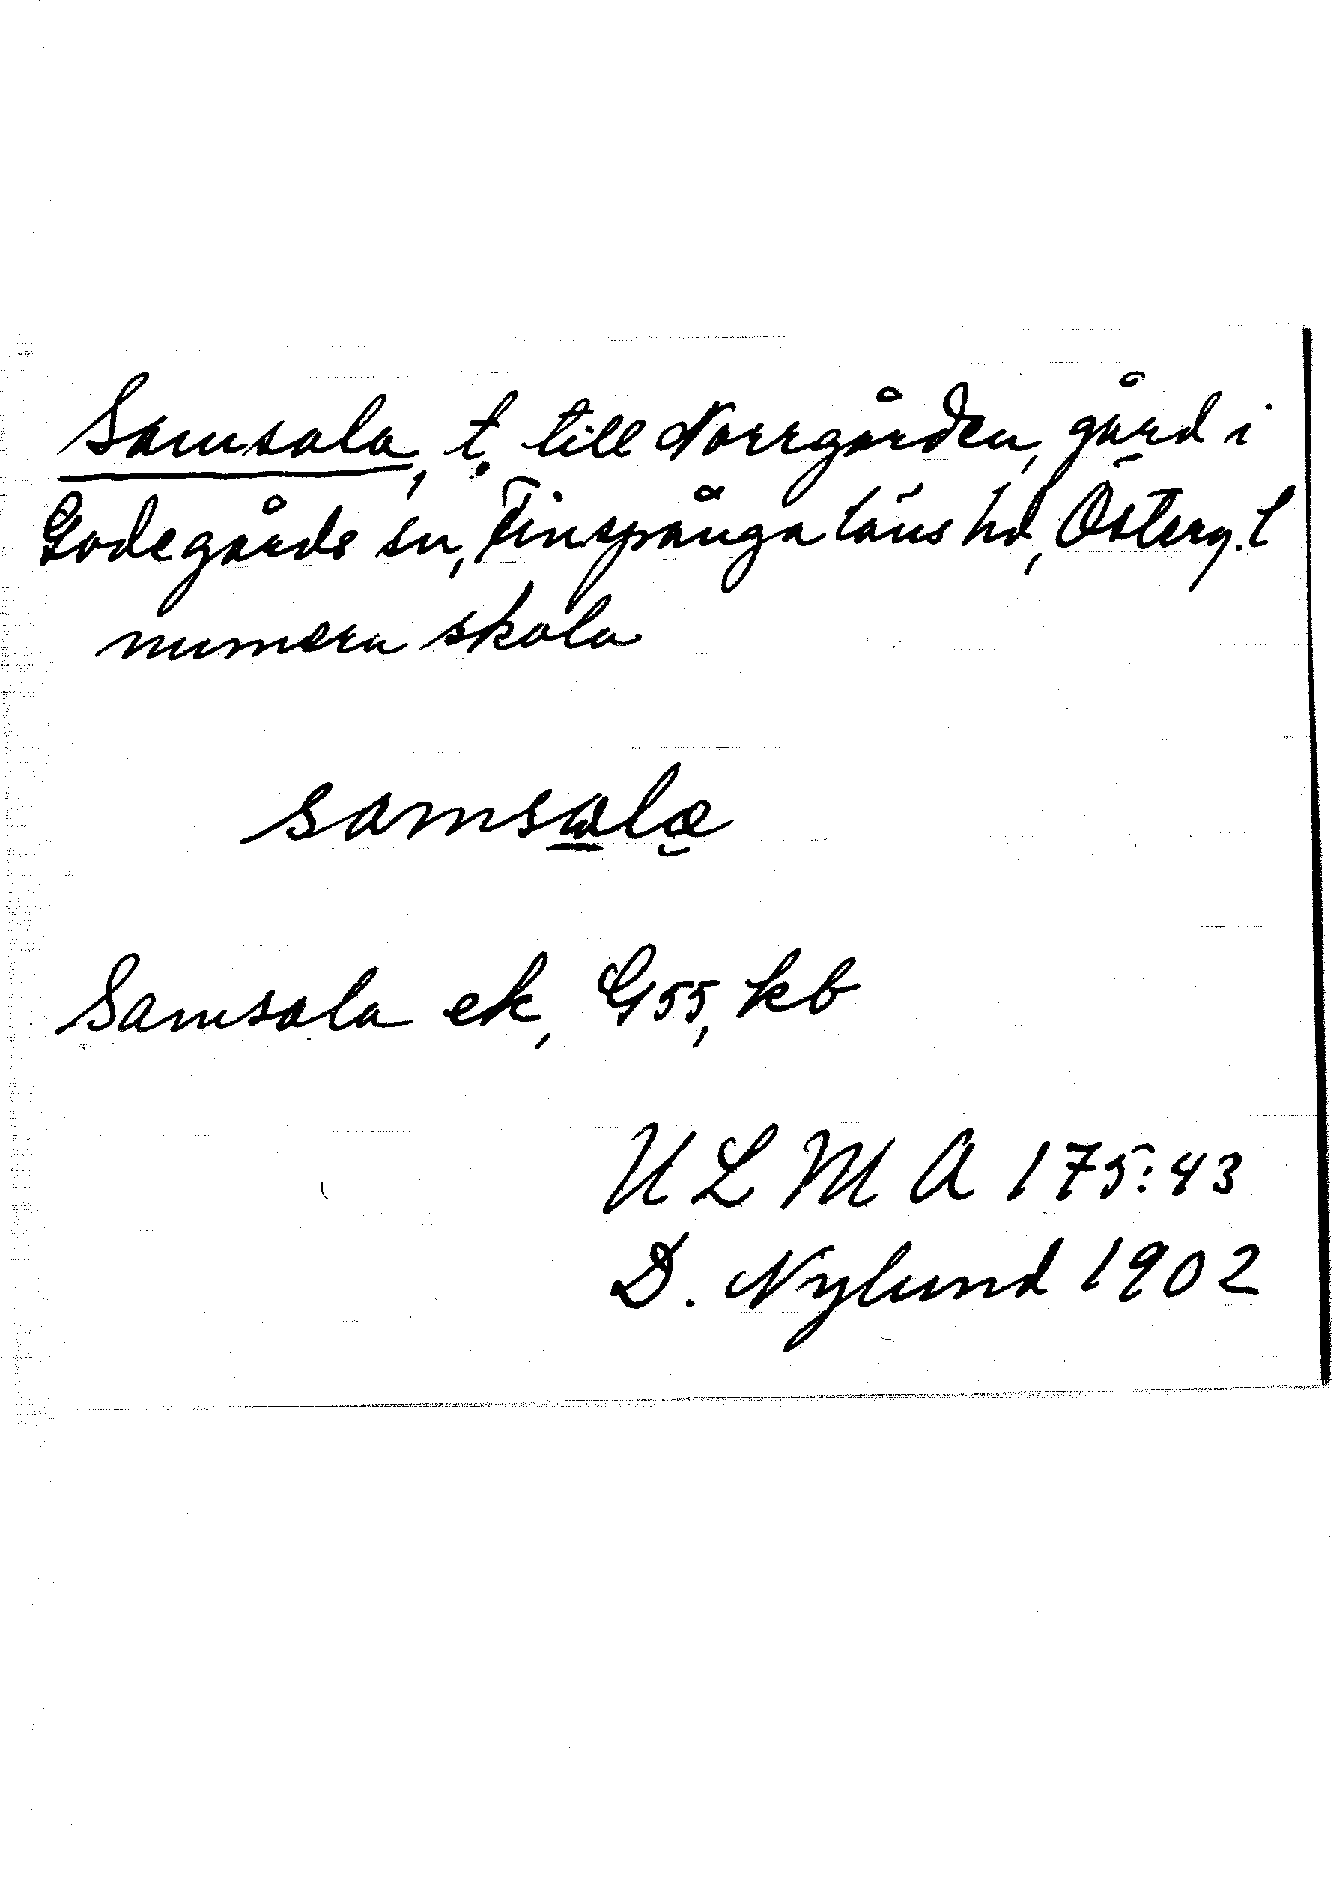 Samsala, t. till Norrgården, gård i
Godegårds sn, Finspånga läns hd, Österg. l
numera skola
samsalæ
Samsala ek, G55, kb
ULMA 175:43
D. Nylund 1902